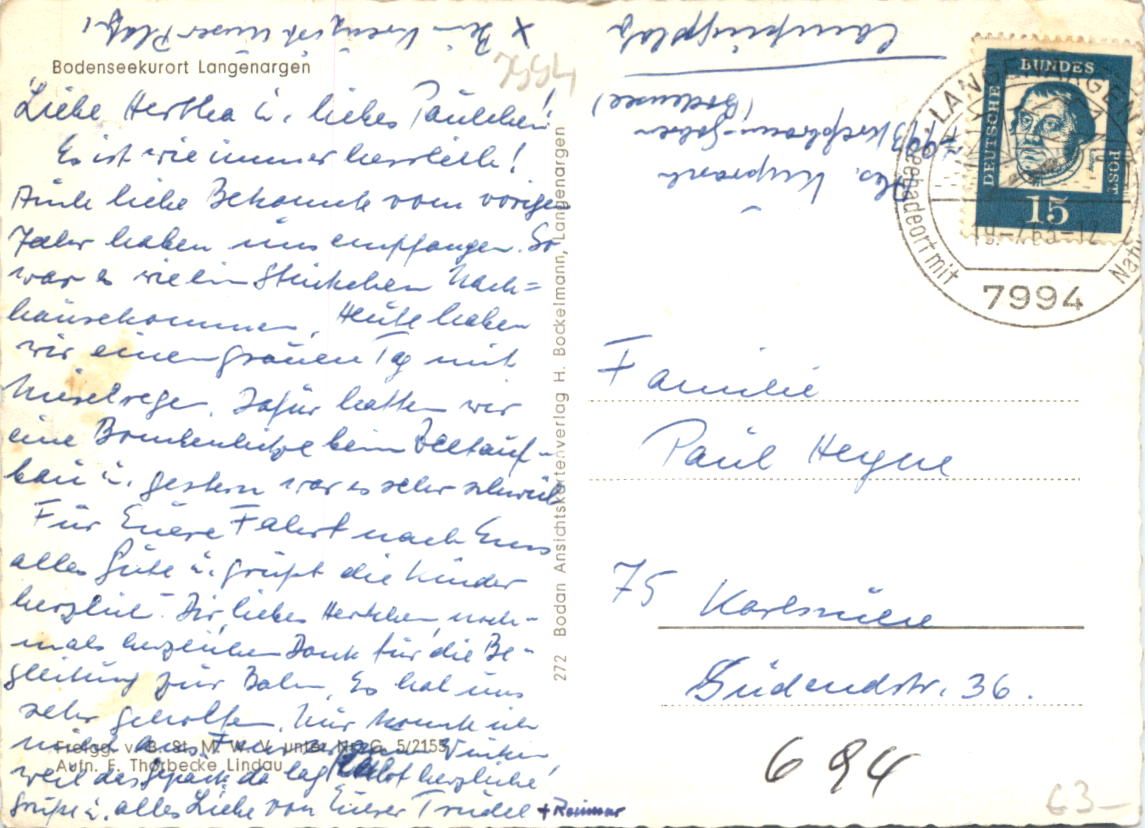 x Dein Kreuz ist unser Platz!
Bodenseekurort Langenargen
7994
Liebe Hertha u. liebes Päulchen!
Es ist wie immer herrlich!
Auch liebe Bekannte vom vorigen
Jahr haben uns empfangen. So
war es wie ein Stückchen Nach-
hausekommen. Heute haben
wir einen grauen Tag mit
Nieselregen. Dafür hatten wir
eine Bombenhitze beim Zeltauf-
bau u. gestern war es sehr schwül
Für Euere Fahrt nach Ems
alles Gute u. grüßt die Kinder
herzlich. Dir, liebes Herthchen, noch-
mals herzlichen Dank für die Be-
gleitung zur Bahn. Es hat uns
sehr geholfen. Nur konnte ich
nicht aus Fenster winken,
weil das Gepäck da lag herzliche
Grüße u. alles Liebe von Eurer Trudel + Reimar
Freigg. v. B. St. M. W. V. unter Nr. G. 5/2155
Aufn. F. Thorbecke Lindau
272 Bodan Ansichtskartenverlag H. Bockelmann, Langenargen
Campingplatz
7993 Kressbronn-Gohren
(Bodensee)
DEUTSCHE BUNDESPOST
15
LANGENARGEN
Seebadeort mit
7994
Familie
Paul Heyne
75 Karlsruhe
Südendstr. 36.
694
63-